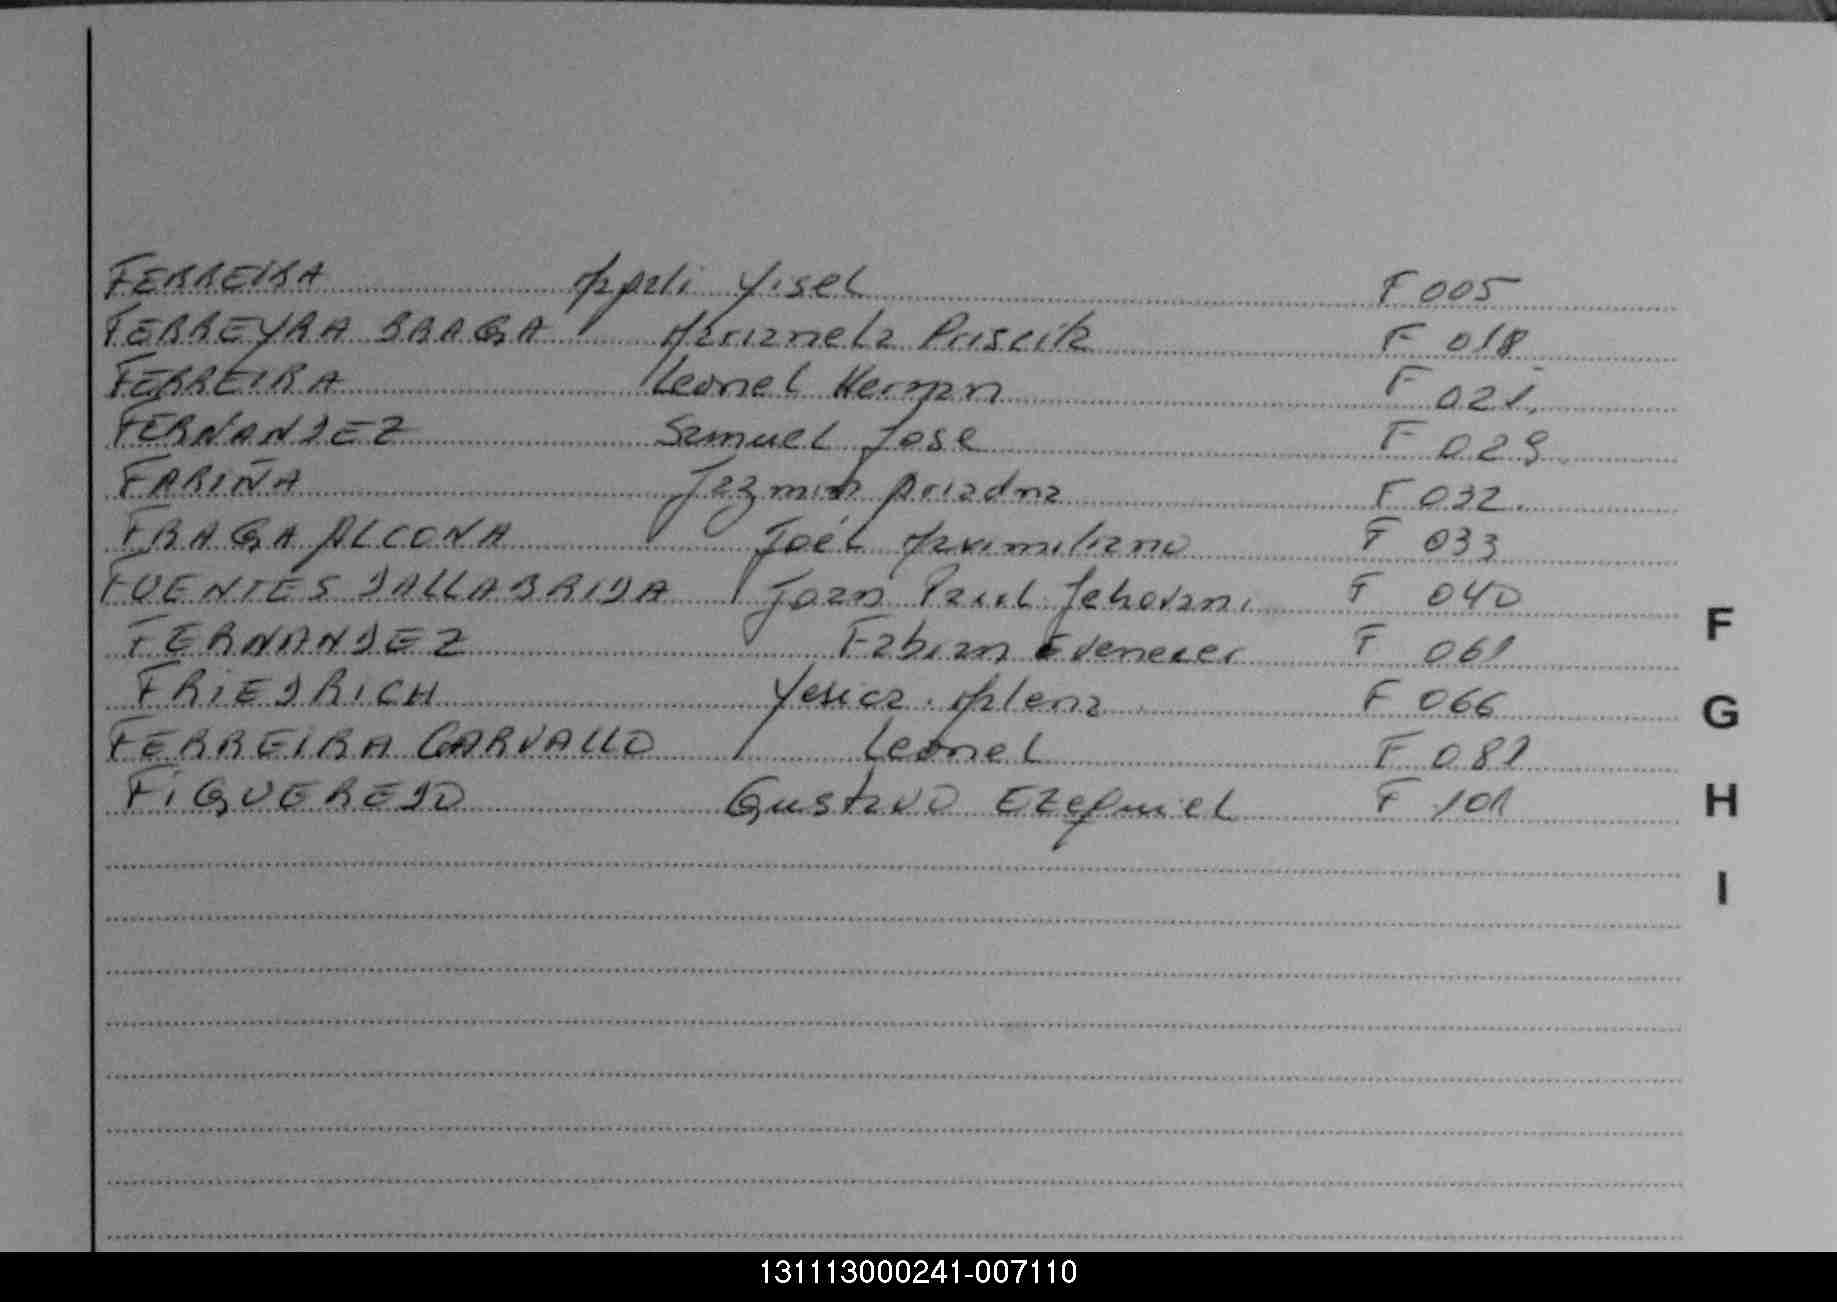 FERREIRA Magali Yisel F 005
FERREYRA BRAGA Marianela Priscila F 018
FERREIRA Leonel Hernan F 021
FERNANDEZ Samuel Jose F 029
FARIÑA Jazmin Ariadna F 032
FRAGA ALCONA Joél Maximiliano F 033
FUENTES DALLABRIDA Joan Paul Jehovani F 040
FERNANDEZ Fabian Evenecer F 061
FRIEDRICH Yesica Malena F 066
FERREIRA CARVALLO Leonel F 081
FIGUEREDO Gustavo Ezequiel F 101
F
G
H
I
131113000241-007110